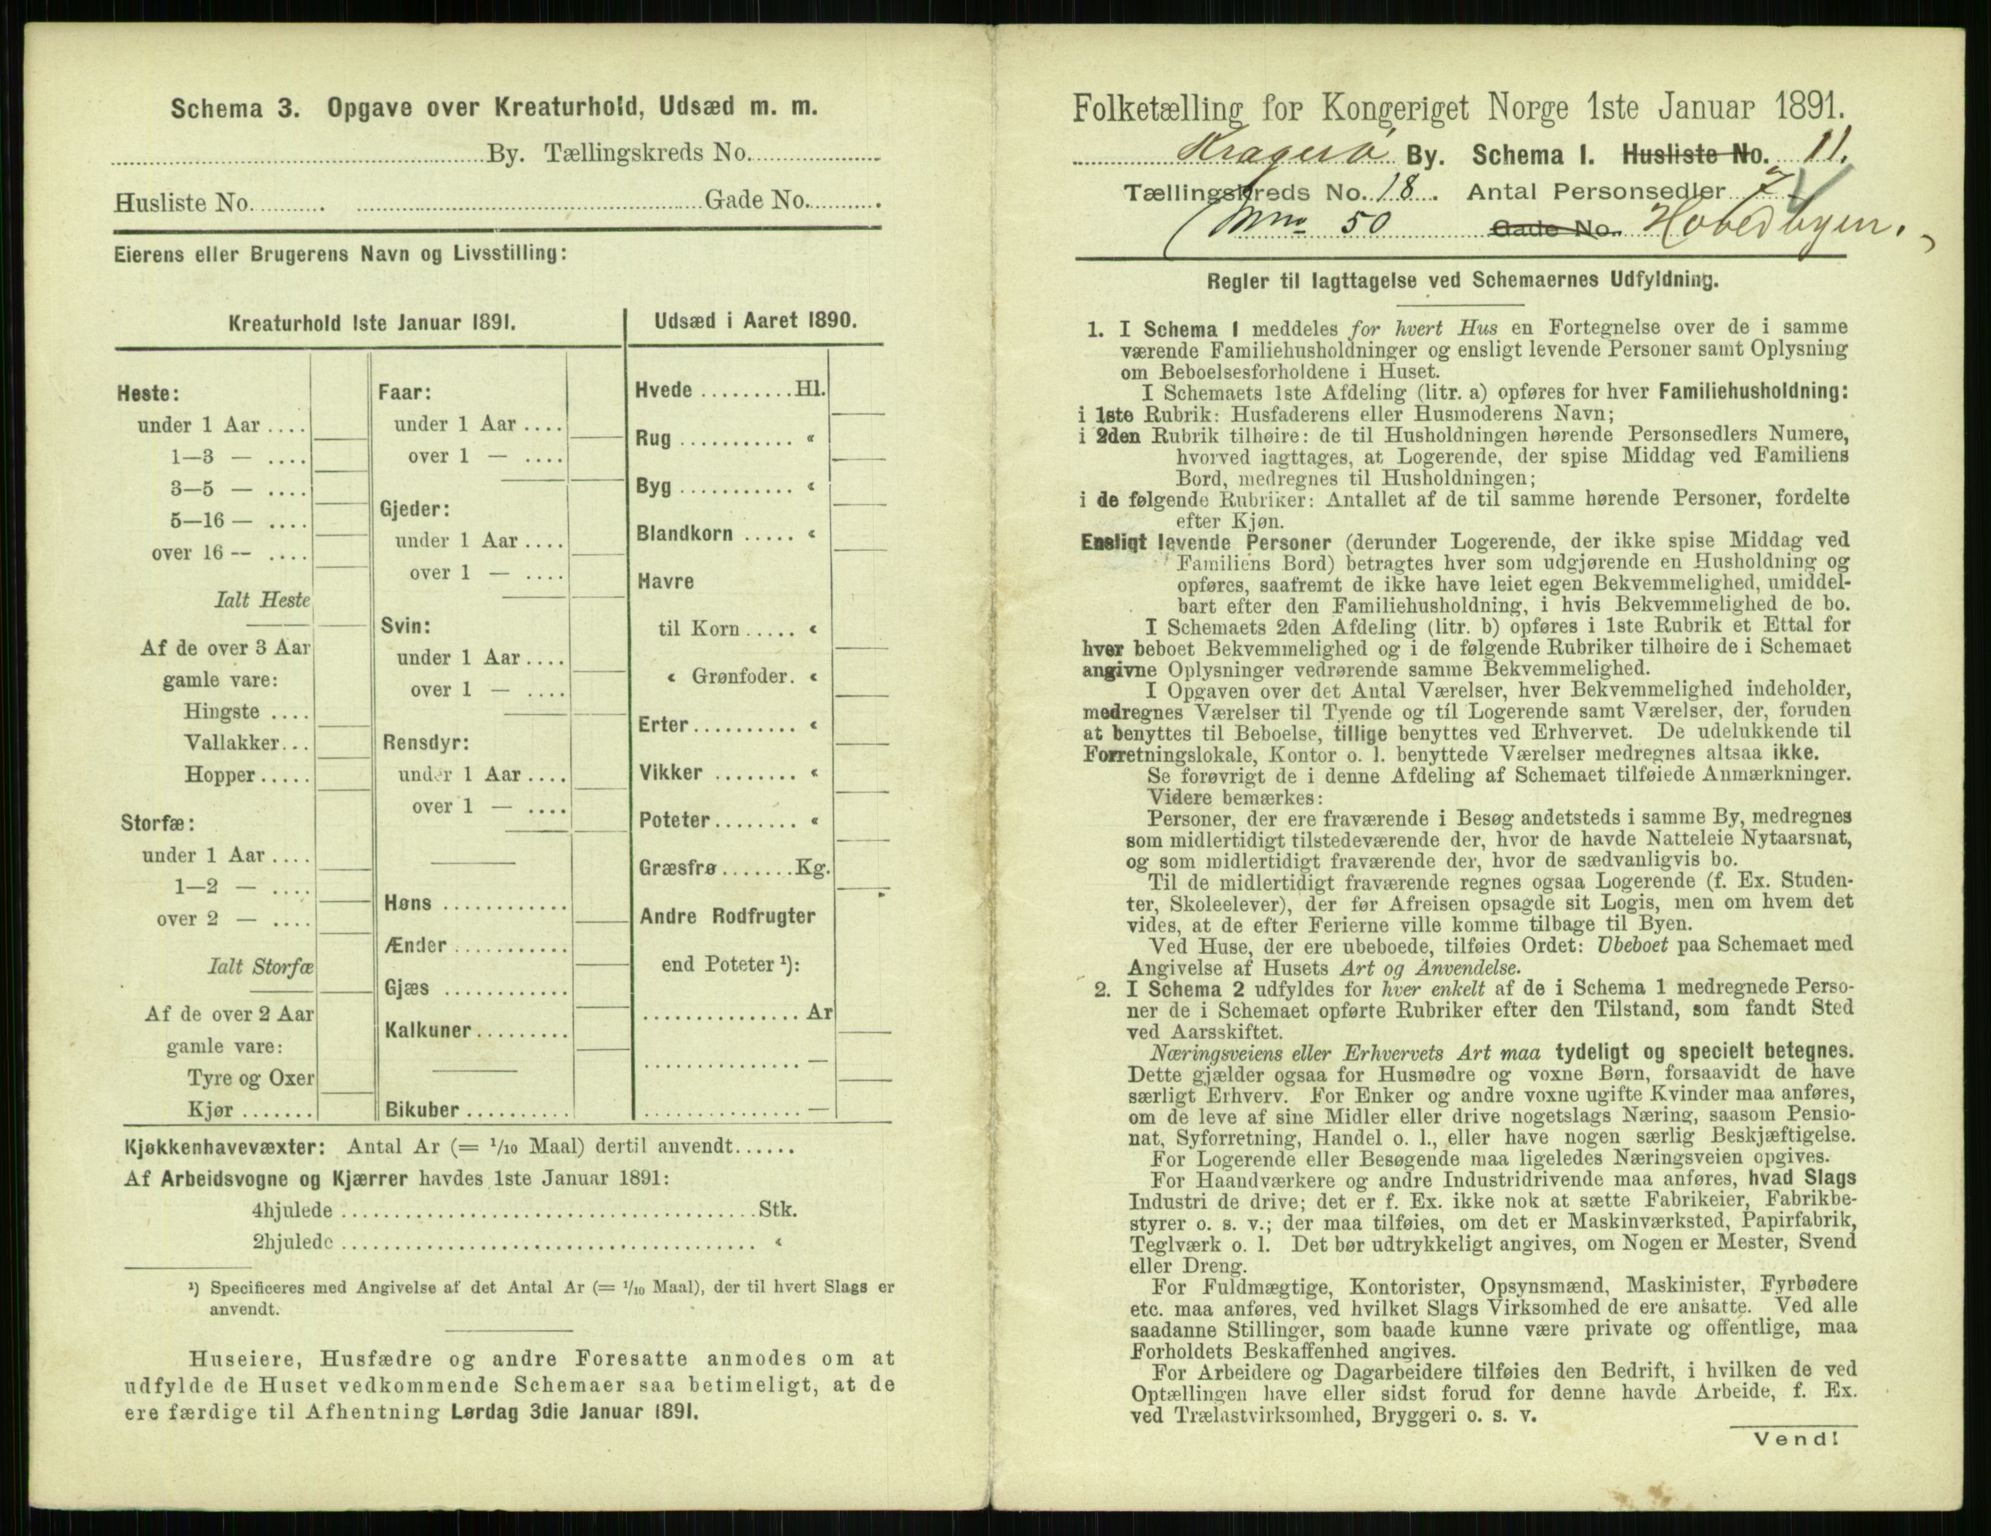 Schema 3. Opgave over Kreaturhold, Udsæd m. m.
By. Tællingskreds No.
Husliste No. Gade No.
Eierens eller Brugerens Navn og Livsstilling:
Kreaturhold 1ste Januar 1891.
Heste:
under 1 Aar ....
1—3 — ....
3—5 — ....
5—16 — ....
over 16 — ....
Ialt Heste
Af de over 3 Aar
gamle vare:
Hingste ....
Vallakker...
Hopper.....
Storfæ:
under 1 Aar ....
1—2 — ....
over 2 — ....
Ialt Storfæ
Af de over 2 Aar
gamle vare:
Tyre og Oxer
Kjør .......
Faar:
under 1 Aar ....
over 1 — ....
Gjeder:
under 1 Aar ....
over 1 — ....
Svin:
under 1 Aar ....
over 1 — ....
Rensdyr:
under 1 Aar ....
over 1 — ....
Høns ............
Ænder ...........
Gjæs ............
Kalkuner.........
Bikuber ..........
Udsæd i Aaret 1890.
Hvede .........Hl.
Rug ........... «
Byg ........... «
Blandkorn ..... «
Havre
til Korn ..... «
« Grønfoder. «
Erter .......... «
Vikker ........ «
Poteter........ «
Græsfrø .......Kg.
Andre Rodfrugter
end Poteter ¹):
............... Ar
............... —
............... —
Kjøkkenhavevæxter: Antal Ar (= 1/10 Maal) dertil anvendt......
Af Arbeidsvogne og Kjærrer havdes 1ste Januar 1891:
4hjulede ........................................Stk.
2hjulede ........................................ «
¹) Specificeres med Angivelse af det Antal Ar (= 1/10 Maal), der til hvert Slags er
anvendt.
Huseiere, Husfædre og andre Foresatte anmodes om at
udfylde de Huset vedkommende Schemaer saa betimeligt, at de
ere færdige til Afhentning Lørdag 3die Januar 1891.
Folketælling for Kongeriget Norge 1ste Januar 1891.
Kragerø By. Schema I. Husliste No. 11.
Tællingskreds No. 18. Antal Personsedler 7
(Mno 50 Gade No. Hovedbyen.)
Regler til Iagttagelse ved Schemaernes Udfyldning.
1. I Schema 1 meddeles for hvert Hus en Fortegnelse over de i samme
værende Familiehusholdninger og ensligt levende Personer samt Oplysning
om Beboelsesforholdene i Huset.
I Schemaets 1ste Afdeling (litr. a) opføres for hver Familiehusholdning:
i 1ste Rubrik: Husfaderens eller Husmoderens Navn;
i 2den Rubrik tilhøire: de til Husholdningen hørende Personsedlers Numere,
hvorved iagttages, at Logerende, der spise Middag ved Familiens
Bord, medregnes til Husholdningen;
i de følgende Rubriker: Antallet af de til samme hørende Personer, fordelte
efter Kjøn.
Ensligt levende Personer (derunder Logerende, der ikke spise Middag ved
Familiens Bord) betragtes hver som udgjørende en Husholdning og
opføres, saafremt de ikke have leiet egen Bekvemmelighed, umiddel-
bart efter den Familiehusholdning, i hvis Bekvemmelighed de bo.
I Schemaets 2den Afdeling (litr. b) opføres i 1ste Rubrik et Ettal for
hver beboet Bekvemmelighed og i de følgende Rubriker tilhøire de i Schemaet
angivne Oplysninger vedrørende samme Bekvemmelighed.
I Opgaven over det Antal Værelser, hver Bekvemmelighed indeholder,
medregnes Værelser til Tyende og til Logerende samt Værelser, der, foruden
at benyttes til Beboelse, tillige benyttes ved Erhvervet. De udelukkende til
Forretningslokale, Kontor o. l. benyttede Værelser medregnes altsaa ikke.
Se forøvrigt de i denne Afdeling af Schemaet tilføiede Anmærkninger.
Videre bemærkes:
Personer, der ere fraværende i Besøg andetsteds i samme By, medregnes
som midlertidigt tilstedeværende der, hvor de havde Natteleie Nytaarsnat,
og som midlertidigt fraværende der, hvor de sædvanligvis bo.
Til de midlertidigt fraværende regnes ogsaa Logerende (f. Ex. Studen-
ter, Skoleelever), der før Afreisen opsagde sit Logis, men om hvem det
vides, at de efter Ferierne ville komme tilbage til Byen.
Ved Huse, der ere ubeboede, tilføies Ordet: Ubeboet paa Schemaet med
Angivelse af Husets Art og Anvendelse.
2. I Schema 2 udfyldes for hver enkelt af de i Schema 1 medregnede Perso-
ner de i Schemaet opførte Rubriker efter den Tilstand, som fandt Sted
ved Aarsskiftet.
Næringsveiens eller Erhvervets Art maa tydeligt og specielt betegnes.
Dette gjælder ogsaa for Husmødre og voxne Børn, forsaavidt de have
særligt Erhverv. For Enker og andre voxne ugifte Kvinder maa anføres,
om de leve af sine Midler eller drive nogetslags Næring, saasom Pensio-
nat, Syforretning, Handel o. l., eller have nogen særlig Beskjæftigelse.
For Logerende eller Besøgende maa ligeledes Næringsveien opgives.
For Haandværkere og andre Industridrivende maa anføres, hvad Slags
Industri de drive; det er f. Ex. ikke nok at sætte Fabrikeier, Fabrikbe-
styrer o. s. v.; der maa tilføies, om det er Maskinværksted, Papirfabrik,
Teglværk o. l. Det bør udtrykkeligt angives, om Nogen er Mester, Svend
eller Dreng.
For Fuldmægtige, Kontorister, Opsynsmænd, Maskinister, Fyrbødere
etc. maa anføres, ved hvilket Slags Virksomhed de ere ansatte. Ved alle
saadanne Stillinger, som baade kunne være private og offentlige, maa
Forholdets Beskaffenhed angives.
For Arbeidere og Dagarbeidere tilføies den Bedrift, i hvilken de ved
Optællingen have eller sidst forud for denne havde Arbeide, f. Ex.
ved Trælastvirksomhed, Bryggeri o. s. v.
Vend!